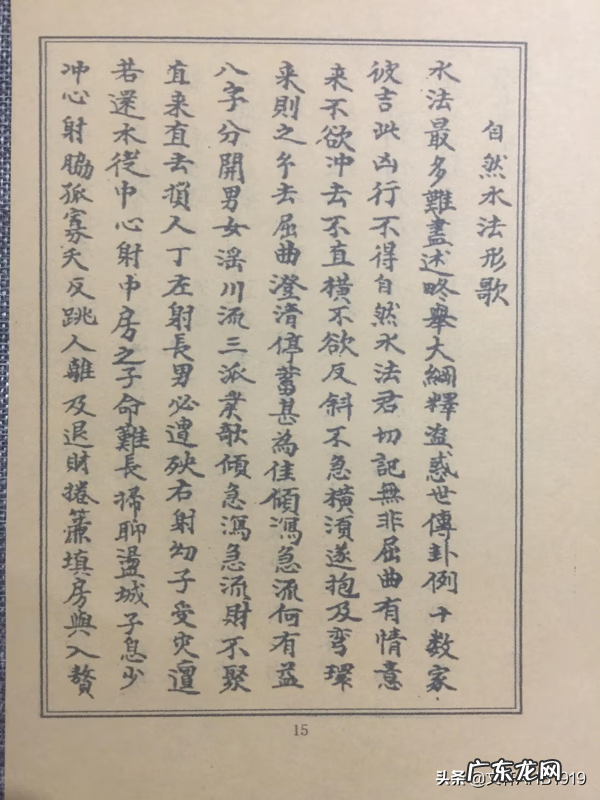 自然水法形歌
水法最多難盡述略舉大綱釋盗惑世傳卦例十数家
彼吉此凶行不得自然水法君切記無非屈曲有情意
来不欲冲去不直横不欲反斜不急横須遶抱及弯環
来則之乡去屈曲澄清停蓄甚為佳傾瀉急流何有益
八字分開男女淫川流三派業歌傾急瀉急流財不聚
直来直去損人丁左射長男必遭殃右射幼子受灾遭
若還水從中心射中房之子命難長掃聊盪城子息少
冲心射脇孤寡夭反跳人離及退財捲簾填房與入贅
15
头条 @
广东龙网